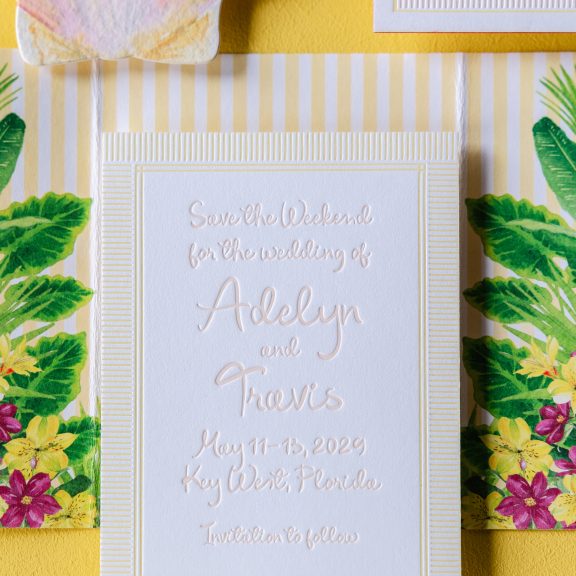 Save the Weekend
for the wedding of
Adelyn
and
Travis
May 11-13, 2029
Key West, Florida
Invitation to follow